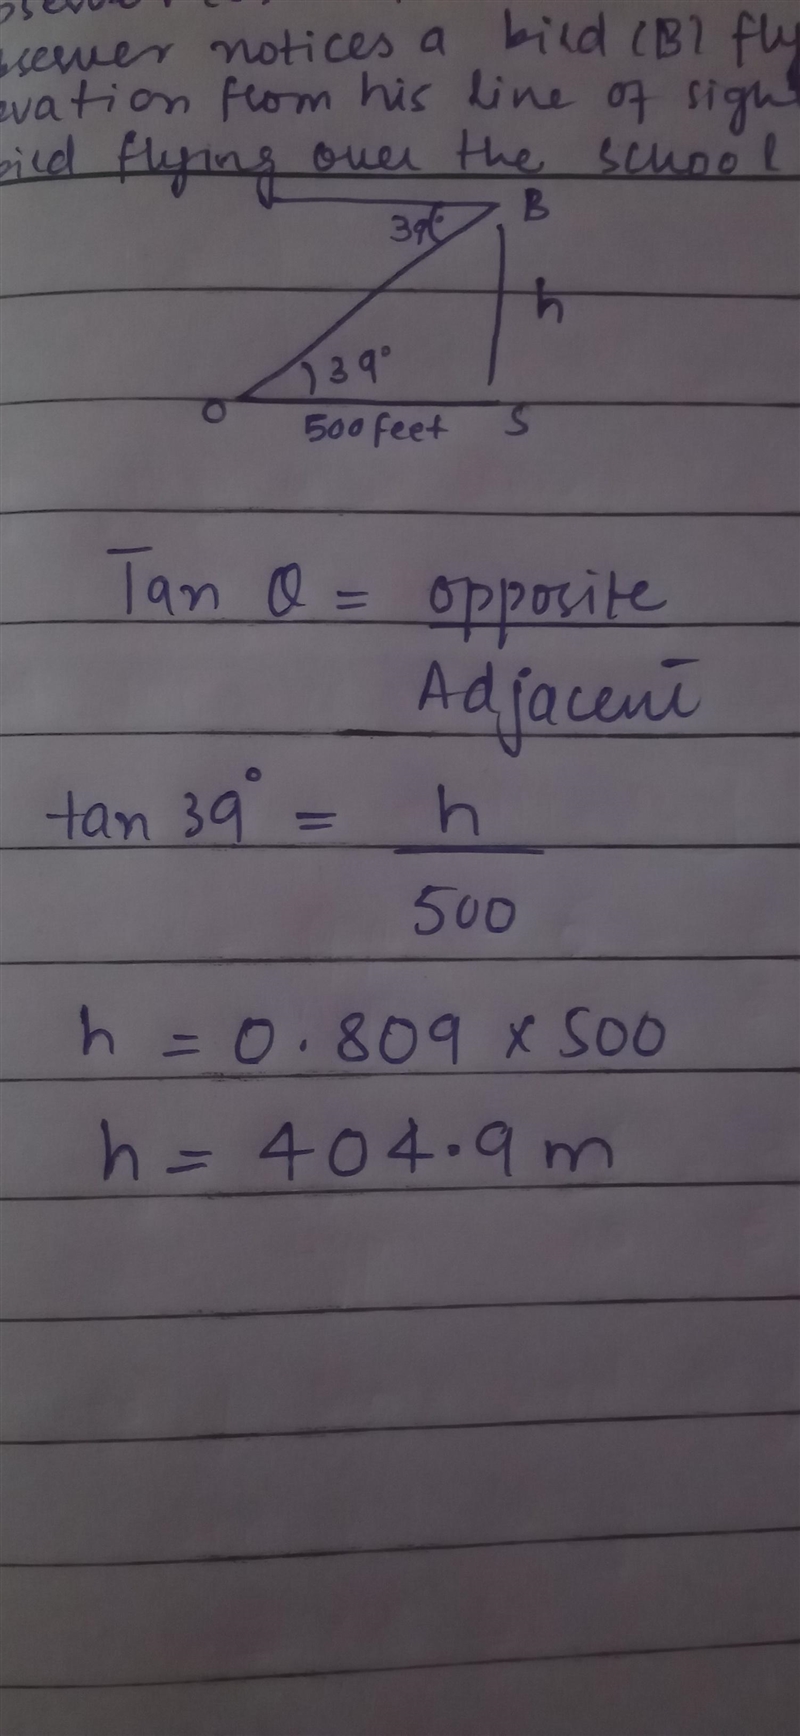 notices a bird (B)
from his line of
flying over the school
39° B
h
39°
O 500 feet S
Tan θ = opposite
Adjacent
tan 39° = h
500
h = 0.809 x 500
h = 404.9 m